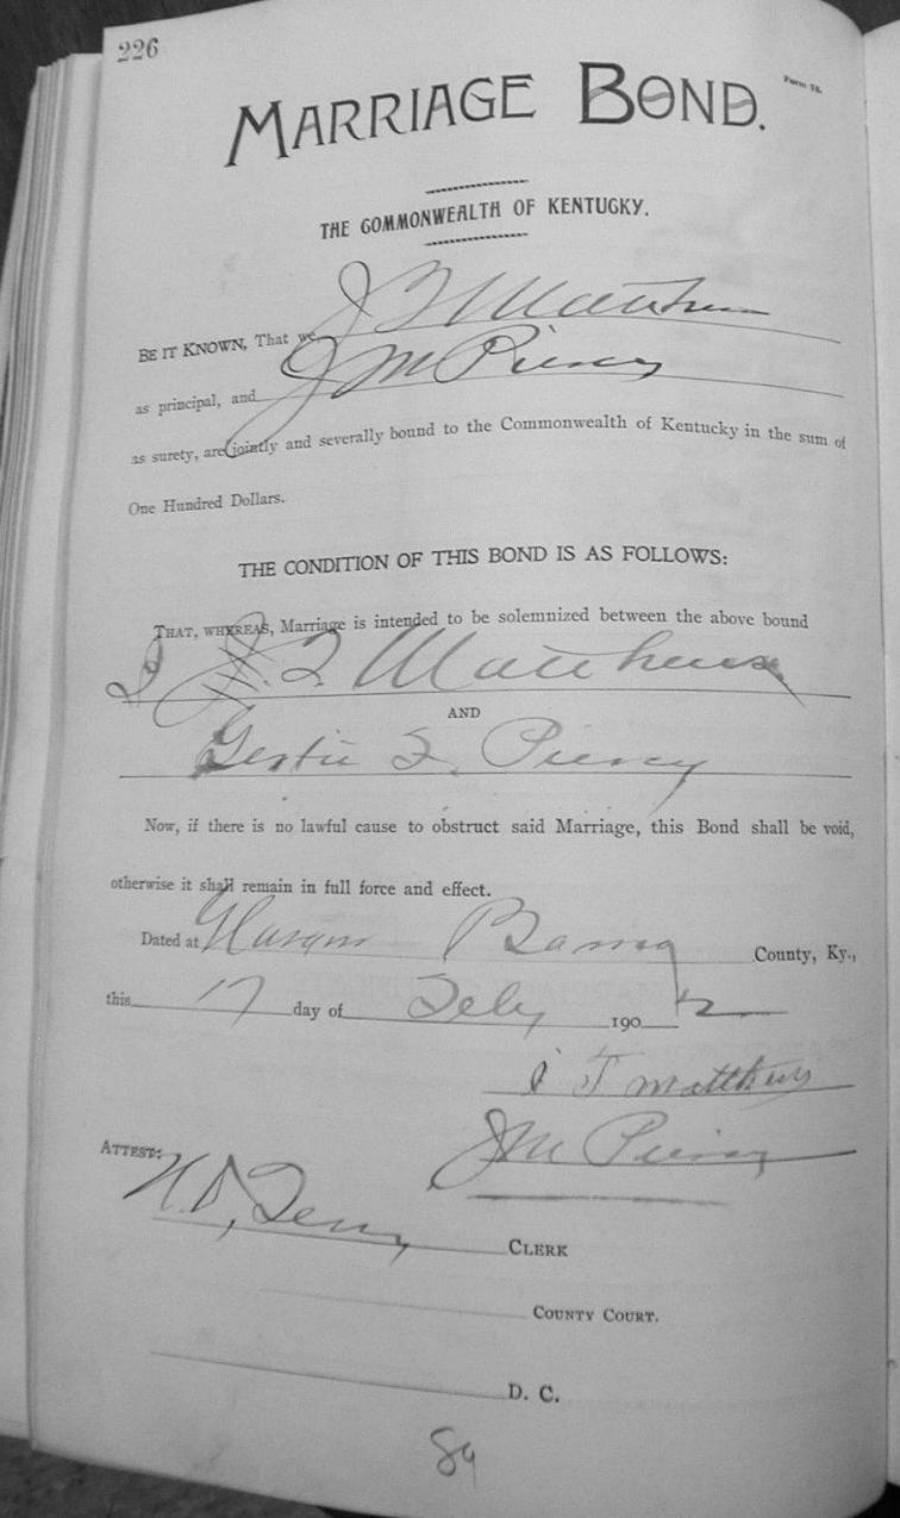 226
Form 78.
MARRIAGE BOND.
THE COMMONWEALTH OF KENTUCKY.
BE IT KNOWN, That we J T Matthews
as principal, and J M Piercy
as surety, are jointly and severally bound to the Commonwealth of Kentucky in the sum of
One Hundred Dollars.
THE CONDITION OF THIS BOND IS AS FOLLOWS:
THAT, WHEREAS, Marriage is intended to be solemnized between the above bound
T. Matthews
AND
Gertie F. Piercy
Now, if there is no lawful cause to obstruct said Marriage, this Bond shall be void,
otherwise it shall remain in full force and effect.
Dated at Barren County, Ky.,
this 17 day of Feby 1902
T Matthews
J M Piercy
ATTEST:
CLERK
COUNTY COURT.
D. C.